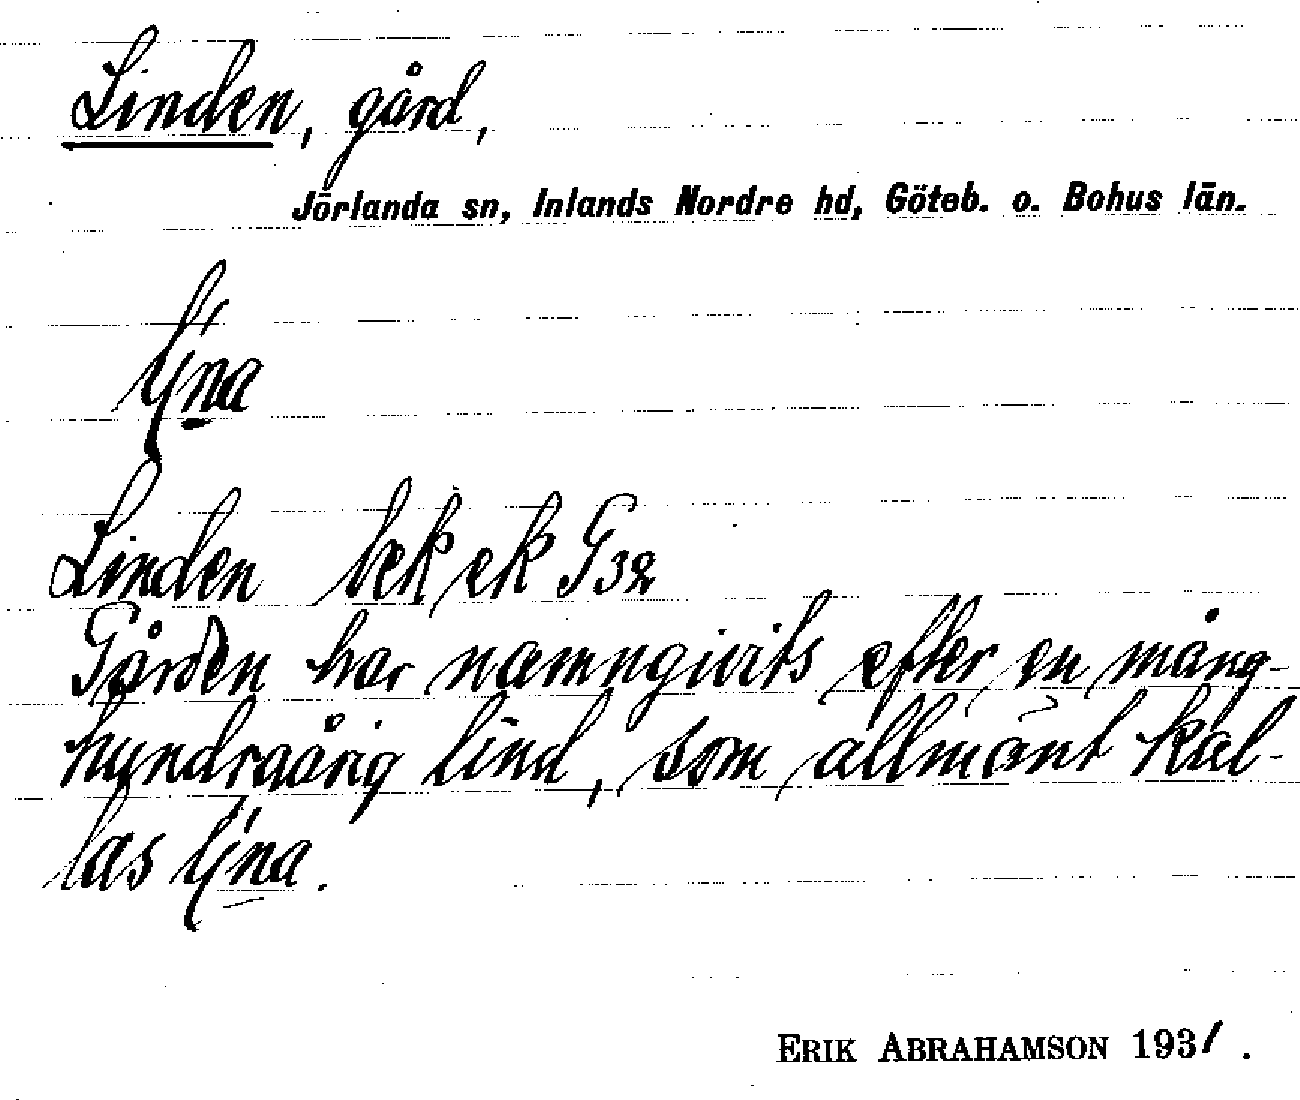 Linden, gård,
Jörlanda sn, Inlands Nordre hd, Göteb. o. Bohus län.
Linden bek ek G 32
Gården har namngivits efter en mång-
hundraårig lind, som allmänt kal-
las
ERIK ABRAHAMSON 1931.